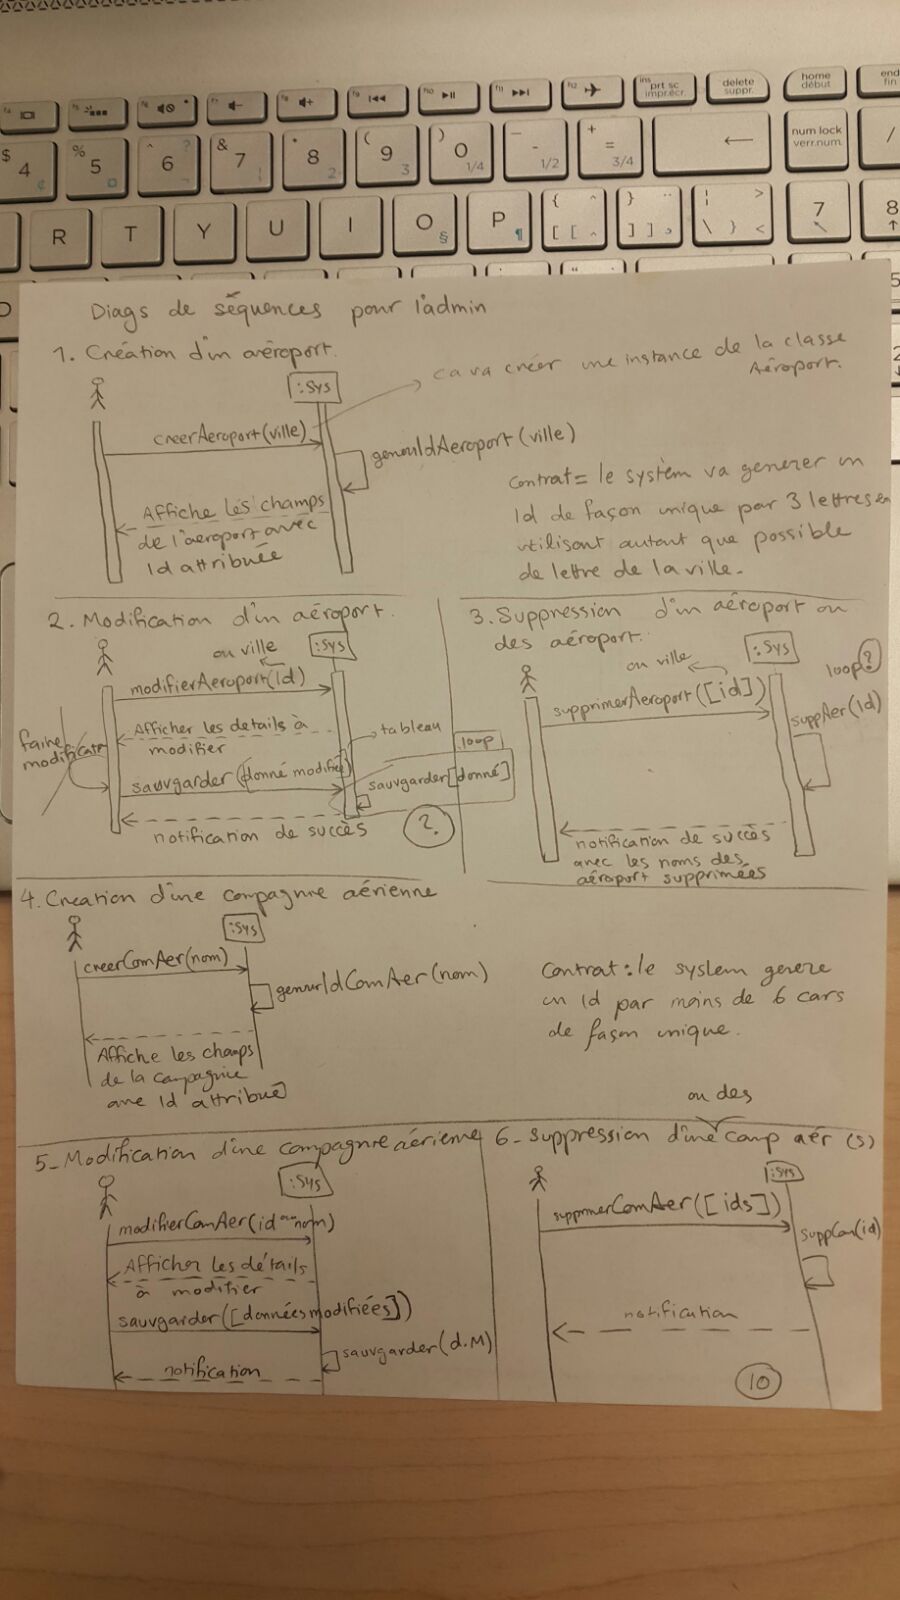 Diags de séquences pour l'admin
1. Création d'un aéroport.
:Sys
ca va créer une instance de la classe
Aéroport.
creerAeroport(ville)
genererIdAeroport(ville)
Affiche les champs
de l'aeroport avec
Id attribuée
Contrat = le systèm va generer un
Id de façon unique par 3 lettres en
utilisant autant que possible
de lettre de la ville.
2. Modification d'un aéroport.
:Sys
ou ville
modifierAeroport(Id)
Afficher les details à
modifier
faire
modificat
tableau
sauvgarder(donné modifié)
loop
sauvgarder[donné]
notification de succès
?
3. Suppression d'un aéroport ou
des aéroport.
:Sys
ou ville
loop ?
supprimerAeroport([id])
suppAer(Id)
notification de succès
avec les noms des
aéroport supprimées
4. Creation d'une compagnie aérienne
:Sys
creerComAer(nom)
genererIdComAer(nom)
Affiche les champs
de la compagnie
avec Id attribué
Contrat : le system genere
un Id par moins de 6 cars
de façon unique.
5_ Modification d'une compagnie aérienne
:Sys
modifierComAer(id ou nom)
Afficher les détails
à modifier
sauvgarder([données modifiées])
sauvgarder(d.M)
notification
ou des
6_ suppression d'une comp aér (s)
:Sys
supprimerComAer([ids])
suppCom(id)
notification
10
$
4
%
5
^
6
?
&
7
*
8
2
(
9
3
)
0
1/4
-
1/2
+
=
3/4
prt sc
impr.écr.
delete
suppr.
home
début
end
fin
num lock
verr.num.
/
R
T
Y
U
I
O
§
P
¶
7
8